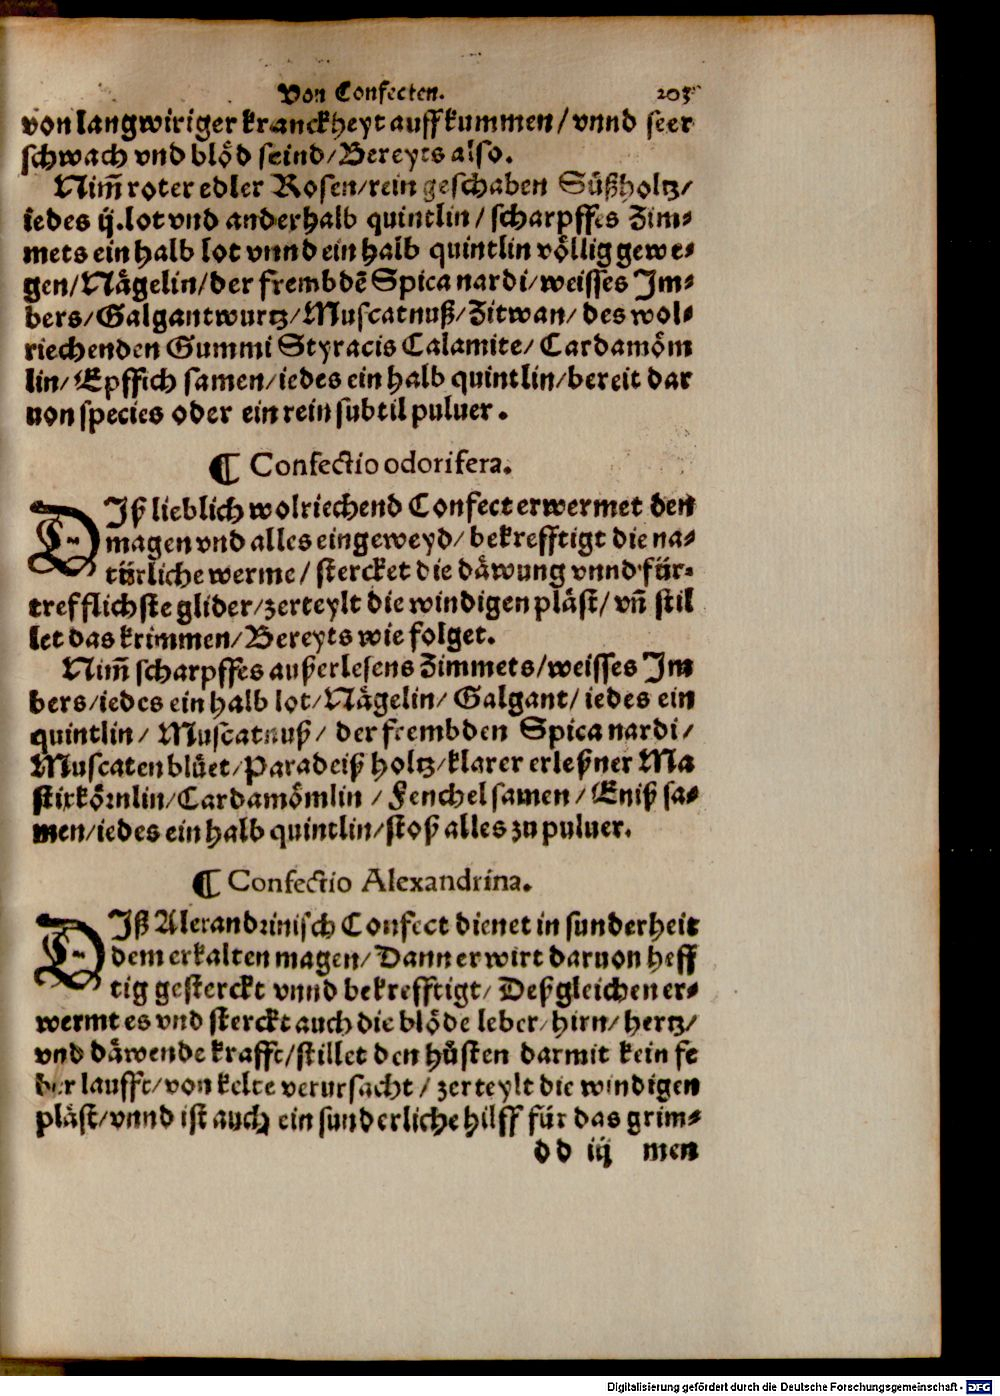 Von Confecten. 203
von langwiriger kranckheyt auffkummen/ vnnd seer
schwach vnd blöd seind/ Bereyts also.
Nim̃ roter edler Rosen/ rein geschaben Süßholtz/
iedes ij. lot vnd anderhalb quintlin/ scharpffes Zim-
mets ein halb lot vnnd ein halb quintlin völlig gewe-
gen/ Nägelin/ der frembdẽ Spica nardi/ weisses Im-
bers/ Galgantwurtz/ Muscatnuß/ Zitwan/ des wol-
riechenden Gummi Styracis Calamite/ Cardamöm
lin/ Epffich samen/ iedes ein halb quintlin/ bereit dar
uon species oder ein rein subtil puluer.
¶ Confectio odorifera.
DIß lieblich wolriechend Confect erwermet den
magen vnd alles eingeweyd/ bekrefftigt die na-
türliche werme/ stercket die däwung vnnd für-
trefflichste glider/ zerteylt die windigen pläst/ vñ stil
let das krimmen/ Bereyts wie folget.
Nim̃ scharpffes außerlesens Zimmets/ weisses Im
bers/ iedes ein halb lot/ Nägelin/ Galgant/ iedes ein
quintlin/ Muscatnuß/ der frembden Spica nardi/
Muscatenblüet/ Paradeiß holtz/ klarer erleßner Ma
stixkörnlin/ Cardamömlin/ Fenchel samen/ Eniß sa-
men/ iedes ein halb quintlin/ stoß alles zu puluer.
¶ Confectio Alexandrina.
DIß Alexandrinisch Confect dienet in sunderheit
dem erkalten magen/ Dann er wirt daruon heff
tig gesterckt vnnd bekrefftigt/ Deßgleichen er-
wermt es vnd sterckt auch die blöde leber/ hirn/ hertz/
vnd däwende krafft/ stillet den hůsten darmit kein fe
ber laufft/ von kelte verursacht/ zerteylt die windigen
pläst/ vnnd ist auch ein sunderliche hilff für das grim-
dd iij men
Digitalisierung gefördert durch die Deutsche Forschungsgemeinschaft - DFG